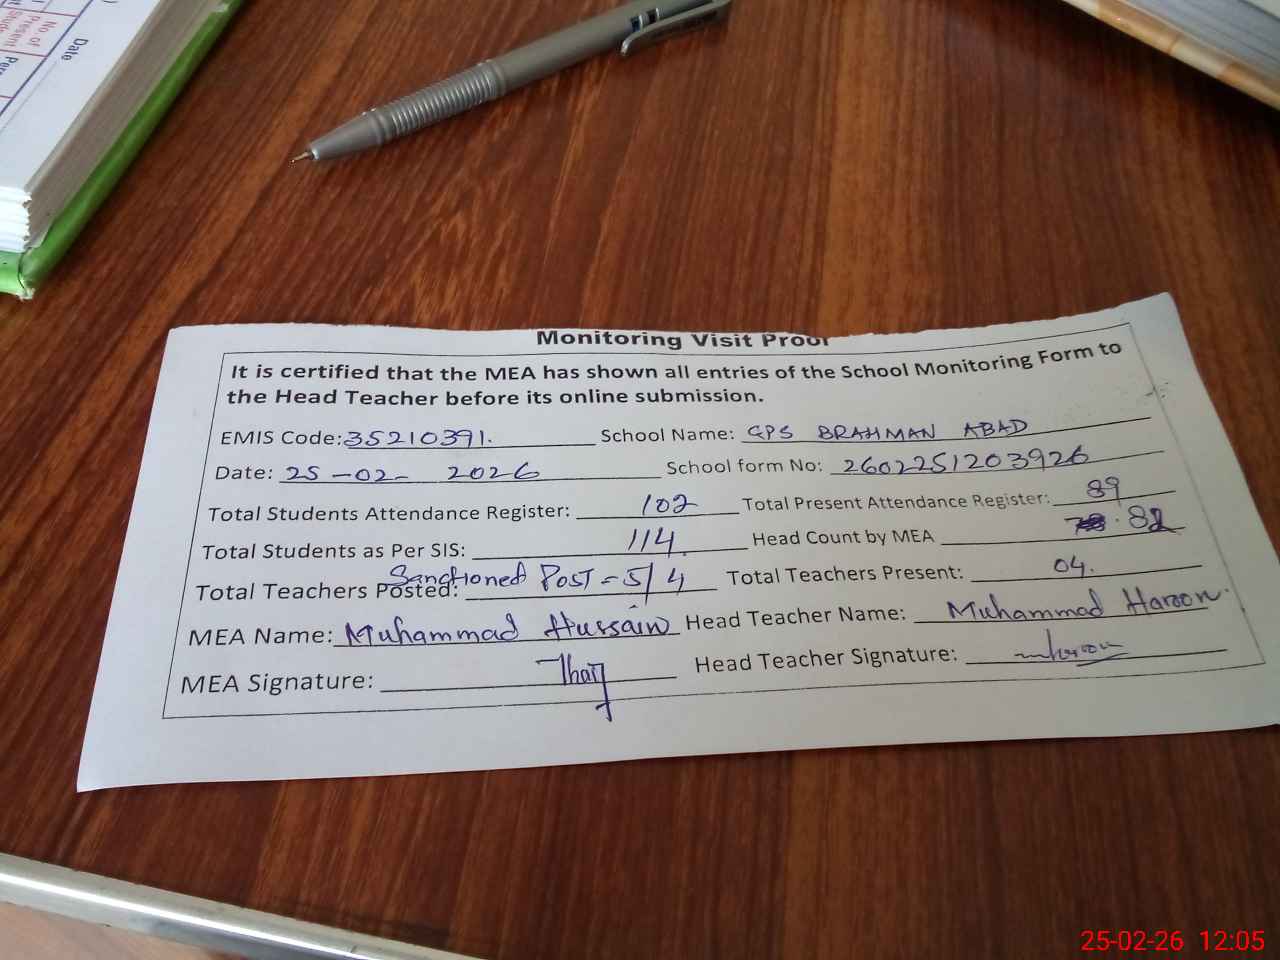 Date
No. of
Present
Monitoring Visit Proof
It is certified that the MEA has shown all entries of the School Monitoring Form to
the Head Teacher before its online submission.
EMIS Code: 35210391. School Name: GPS BRAHMAN ABAD
Date: 25-02-2026 School form No: 2602251203926
Total Students Attendance Register: 102 Total Present Attendance Register: 89
Total Students as Per SIS: 114 Head Count by MEA 82
Total Teachers Posted: Sanctioned Post = 5/4 Total Teachers Present: 04.
MEA Name: Muhammad Hussain Head Teacher Name: Muhammad Haroon.
MEA Signature: Head Teacher Signature:
25-02-26 12:05